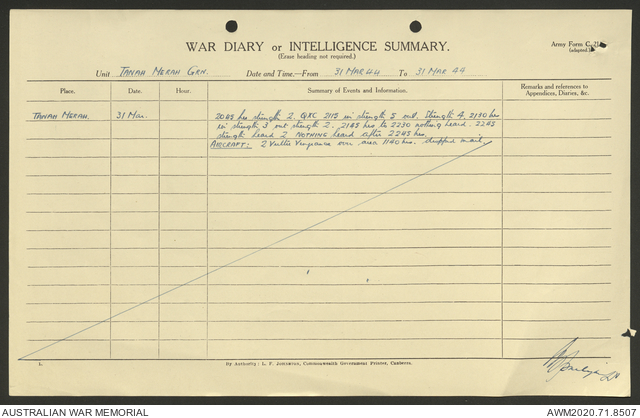 WAR DIARY or INTELLIGENCE SUMMARY.
(Erase heading not required.)
Army Form C.
(adapted.)
Unit TANAH MERAH GRN. Date and Time.—From 31 MAR 44 To 31 MAR 44
Place. Date. Hour. Summary of Events and Information. Remarks and references to Appendices, Diaries, &c.
TANAH MERAH. 31 Mar. 2045 hrs strength 2. 2115 in strength 5 out. Strength 4. 2130 hrs
in strength 3 out strength 2. 2145 hrs to 2230 nothing heard. 2245
strength heard 2 NOTHING heard after 2245 hrs.
AIRCRAFT: 2 Vultee Vengeance over area 1140 hrs. dropped mail.
L.
By Authority: L. F. Johnston, Commonwealth Government Printer, Canberra.
AUSTRALIAN WAR MEMORIAL
AWM2020.71.8507